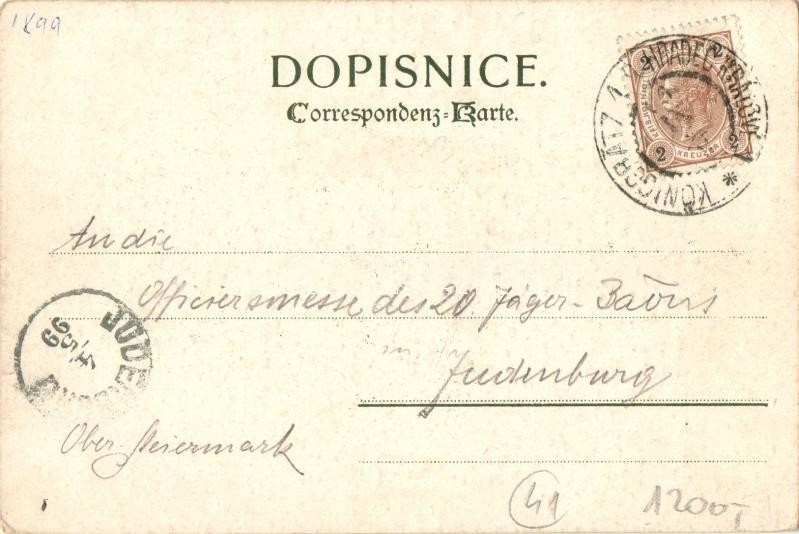 1899
DOPISNICE.
Correspondenz-Karte.
2 2
KREUZER
2 2
KÖNIGGRATZ 1 HRADEC KRÁLOVÉ *
An die
Officiersmesse des 20. Jäger-Baōns
in Judenburg
JUDENBURG
4 5 99
Ober-Steiermark
41
1200,-